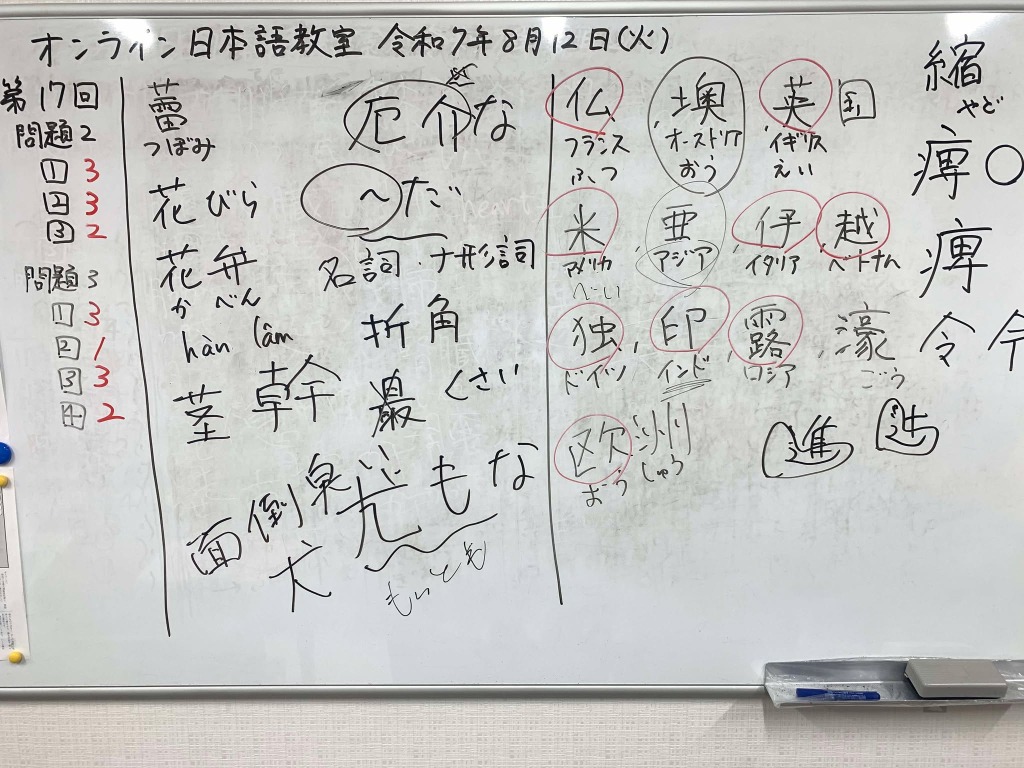 オンライン日本語教室 令和7年8月12日(火)
第17回
問題2
1 3
2 3
3 2
問題3
1 3
2 1
3 3
4 2
蕾
つぼみ
花びら
花弁
か べん
hàn lâm
茎 幹
面倒
厄介な
〜だ
名詞・ナ形詞
折角
くさい
泉 尤もな
犬
もっとも
仏, 墺, 英国
フランス オーストリア イギリス
ふつ おう えい
米, 亜, 伊, 越
アメリカ アジア イタリア ベトナム
べい
独, 印, 露, 濠
ドイツ インド ロシア ごう
欧州
おう しゅう
進
縮
やど
痺〇
痺
令 令